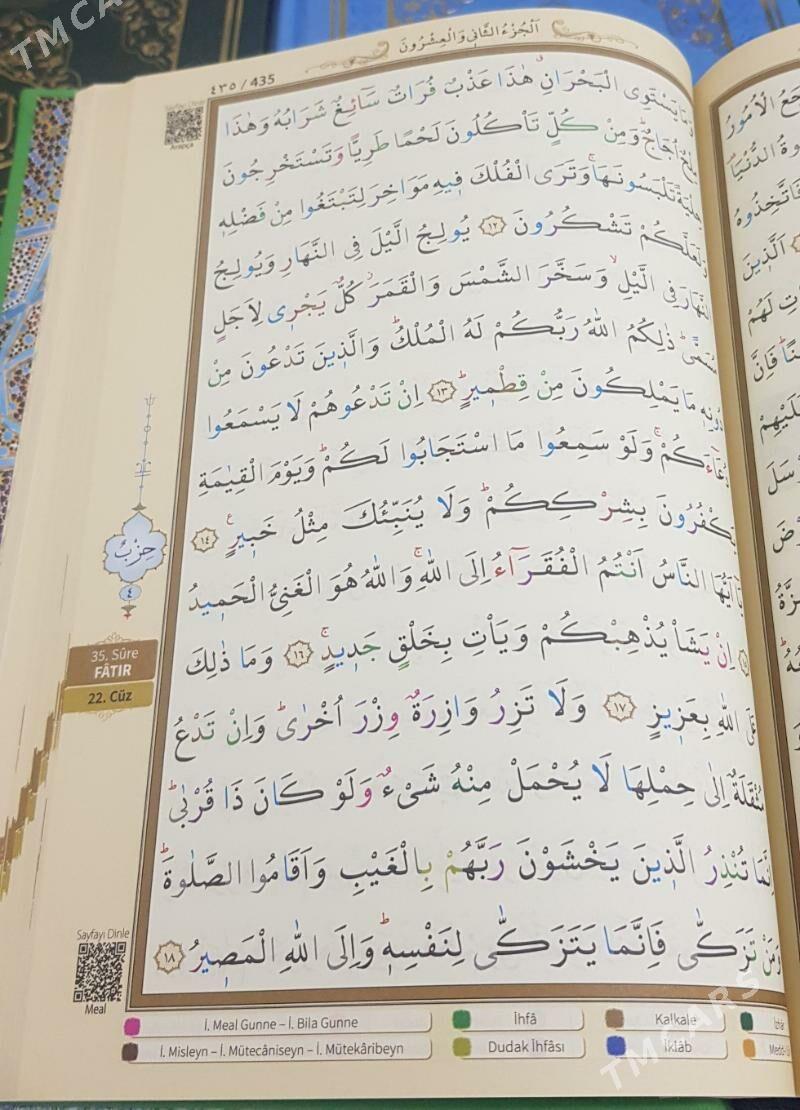 اَلْجُزْءُ الثَّانِي وَالْعِشْرُونَ
٤٣٥ / 435
Sayfayı Dinle
Arapça
وَمَا يَسْتَوِي الْبَحْرَانِۗ هٰذَا عَذْبٌ فُرَاتٌ سَٓائِغٌ شَرَابُهُ وَهٰذَا
مِلْحٌ اُجَاجٌۜ وَمِنْ كُلٍّ تَأْكُلُونَ لَحْمًا طَرِيًّا وَتَسْتَخْرِجُونَ
حِلْيَةً تَلْبَسُونَهَاۚ وَتَرَى الْفُلْكَ فِيهِ مَوَاخِرَ لِتَبْتَغُوا مِنْ فَضْلِهِ
وَلَعَلَّكُمْ تَشْكُرُونَ ﴿١٢﴾ يُولِجُ الَّيْلَ فِي النَّهَارِ وَيُولِجُ
النَّهَارَ فِي الَّيْلِۙ وَسَخَّرَ الشَّمْسَ وَالْقَمَرَۘ كُلٌّ يَجْرِي لِاَجَلٍ
مُسَمًّىۜ ذٰلِكُمُ اللّٰهُ رَبُّكُمْ لَهُ الْمُلْكُۜ وَالَّذِينَ تَدْعُونَ مِنْ
دُونِهِ مَا يَمْلِكُونَ مِنْ قِطْمِيرٍۜ ﴿١٣﴾ اِنْ تَدْعُوهُمْ لَا يَسْمَعُوا
دُعَٓاءَكُمْۚ وَلَوْ سَمِعُوا مَا اسْتَجَابُوا لَكُمْۜ وَيَوْمَ الْقِيٰمَةِ
يَكْفُرُونَ بِشِرْكِكُمْۜ وَلَا يُنَبِّئُكَ مِثْلُ خَبِيرٍ۟ ﴿١٤﴾
يَٓا اَيُّهَا النَّاسُ اَنْتُمُ الْفُقَرَٓاءُ اِلَى اللّٰهِۚ وَاللّٰهُ هُوَ الْغَنِيُّ الْحَمِيدُ
اِنْ يَشَأْ يُذْهِبْكُمْ وَيَأْتِ بِخَلْقٍ جَدِيدٍۚ ﴿١٦﴾ وَمَا ذٰلِكَ
عَلَى اللّٰهِ بِعَزِيزٍ ﴿١٧﴾ وَلَا تَزِرُ وَازِرَةٌ وِزْرَ اُخْرٰىۜ وَاِنْ تَدْعُ
مُثْقَلَةٌ اِلٰى حِمْلِهَا لَا يُحْمَلْ مِنْهُ شَيْءٌ وَلَوْ كَانَ ذَا قُرْبٰىۜ
اِنَّمَا تُنْذِرُ الَّذِينَ يَخْشَوْنَ رَبَّهُمْ بِالْغَيْبِ وَاَقَامُوا الصَّلٰوةَۜ
وَمَنْ تَزَكّٰى فَاِنَّمَا يَتَزَكّٰى لِنَفْسِهِۜ وَاِلَى اللّٰهِ الْمَصِيرُ ﴿١٨﴾
حِزْبٌ
٤
35. Sûre
FÂTIR
22. Cüz
Sayfayı Dinle
Meal
İ. Meal Gunne – İ. Bila Gunne
İhfâ
Kalkale
İ. Misleyn – İ. Mütecâniseyn – İ. Mütekâribeyn
Dudak İhfâsı
İklâb
الْاُمُورُ
الدُّنْيَا
فَاتَّخِذُوهُ
اَلَّذِينَ
لَهُمْ
فَاِنَّ
عَلَيْهِمْ
TMCARS